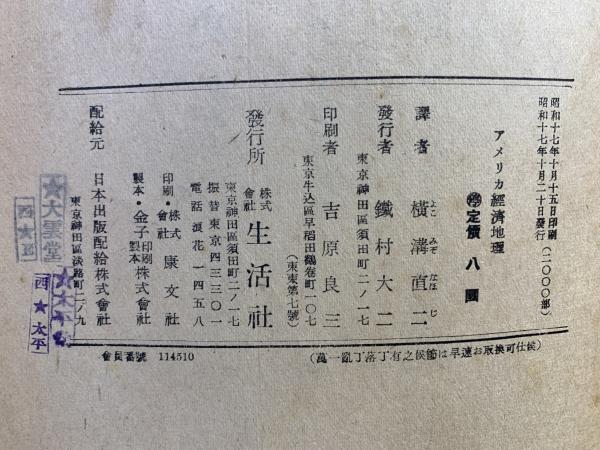 昭和十七年十月十五日印刷
昭和十七年十月二十日發行 (二〇〇〇部)
アメリカ經濟地理
停定價 八圓
譯者 横溝直二
よこ みぞ なほ じ
東京神田區須田町二ノ一七
發行者 鐵村大二
東京牛込區早稻田鶴巻町一〇七
印刷者 吉原良三
(東東第七號)
發行所 株式會社 生活社
東京神田區須田町二ノ一七
振替東京四三三〇一
電話浪花一四五八
印刷・株式會社 康文社
製本・金子印刷製本株式會社
配給元 日本出版配給株式會社
東京神田區淡路町二ノ九
(萬一亂丁落丁有之候節は早速お取換可仕候)
會員番號 114510
★大雲堂
西★
★太平
西★太平